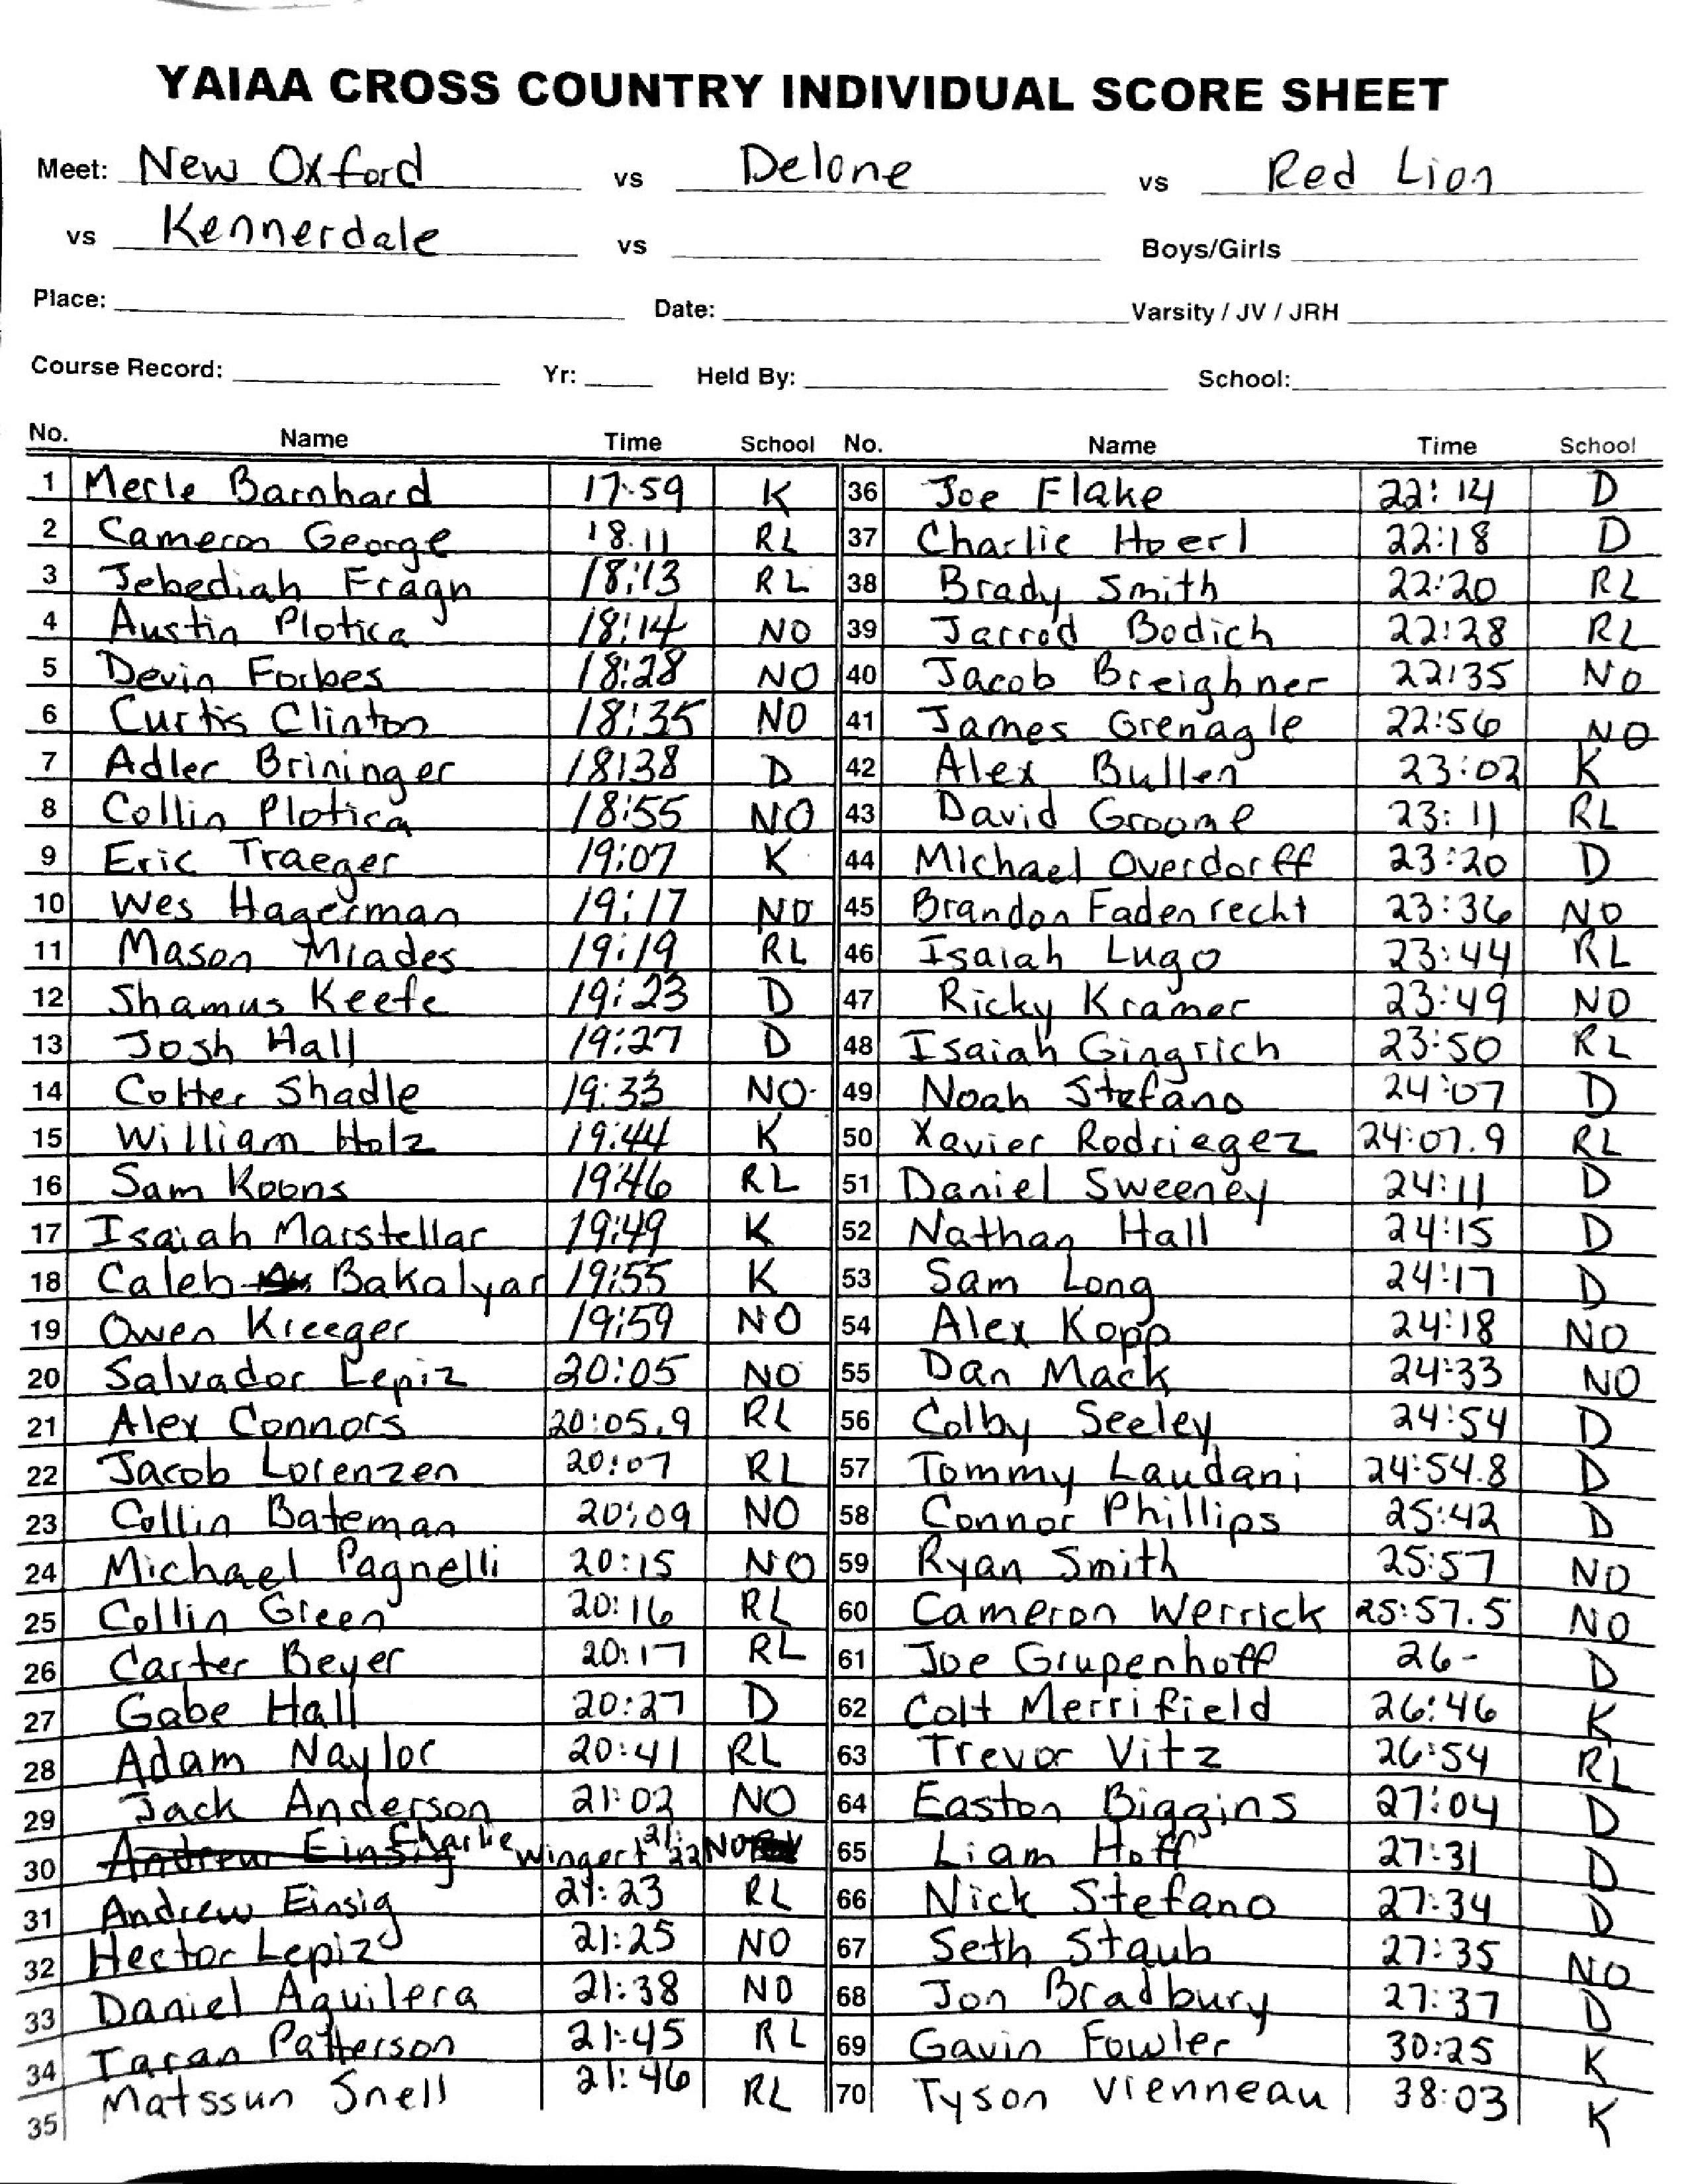 YAIAA CROSS COUNTRY INDIVIDUAL SCORE SHEET
Meet: New Oxford vs Delone vs Red Lion
vs Kennerdale vs Boys/Girls
Place: Date: Varsity / JV / JRH
Course Record: Yr: Held By: School:
No. Name Time School No. Name Time School
1 Merle Barnhard 17:59 K 36 Joe Flake 22:14 D
2 Cameron George 18:11 RL 37 Charlie Hoerl 22:18 D
3 Jebediah Fragn 18:13 RL 38 Brady Smith 22:20 RL
4 Austin Plotica 18:14 NO 39 Jarrod Bodich 22:28 RL
5 Devin Forbes 18:28 NO 40 Jacob Breighner 22:35 NO
6 Curtis Clinton 18:35 NO 41 James Grenagle 22:56 NO
7 Adler Brininger 18:38 D 42 Alex Bullen 23:02 K
8 Collin Plotica 18:55 NO 43 David Groome 23:11 RL
9 Eric Traeger 19:07 K 44 Michael Overdorff 23:20 D
10 Wes Hagerman 19:17 NO 45 Brandon Fadenrecht 23:36 NO
11 Mason Miades 19:19 RL 46 Isaiah Lugo 23:44 RL
12 Shamus Keefe 19:23 D 47 Ricky Kramer 23:49 NO
13 Josh Hall 19:27 D 48 Isaiah Gingrich 23:50 RL
14 Cotter Shadle 19:33 NO 49 Noah Stefano 24:07 D
15 William Holz 19:44 K 50 Xavier Rodriegez 24:07.9 RL
16 Sam Koons 19:46 RL 51 Daniel Sweeney 24:11 D
17 Isaiah Marstellar 19:49 K 52 Nathan Hall 24:15 D
18 Caleb Bakalyar 19:55 K 53 Sam Long 24:17 D
19 Owen Kreeger 19:59 NO 54 Alex Kopp 24:18 NO
20 Salvador Lepiz 20:05 NO 55 Dan Mack 24:33 NO
21 Alex Connors 20:05.9 RL 56 Colby Seeley 24:54 D
22 Jacob Lorenzen 20:07 RL 57 Tommy Laudani 24:54.8 D
23 Collin Bateman 20:09 NO 58 Connor Phillips 25:42 D
24 Michael Pagnelli 20:15 NO 59 Ryan Smith 25:57 NO
25 Collin Green 20:16 RL 60 Cameron Werrick 25:57.5 NO
26 Carter Beyer 20:17 RL 61 Joe Grupenhoff 26- D
27 Gabe Hall 20:27 D 62 Colt Merrifield 26:46 K
28 Adam Naylor 20:41 RL 63 Trevor Vitz 26:54 RL
29 Jack Anderson 21:02 NO 64 Easton Biggins 27:04 D
30 Andrew Einsig Charlie Wingert 21:22 NO 65 Liam Hoff 27:31 D
31 Andrew Einsig 21:23 RL 66 Nick Stefano 27:34 D
32 Hector Lepiz 21:25 NO 67 Seth Staub 27:35 NO
33 Daniel Aguilera 21:38 NO 68 Jon Bradbury 27:37 D
34 Taran Patterson 21:45 RL 69 Gavin Fowler 30:25 K
35 Matssun Snell 21:46 RL 70 Tyson Vienneau 38:03 K